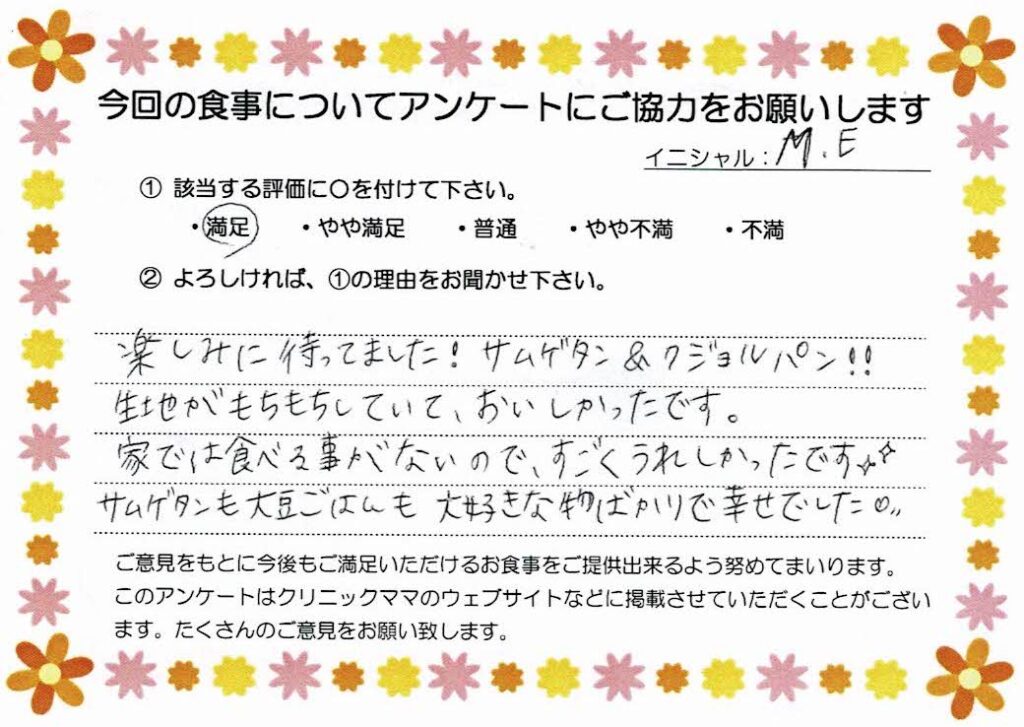 今回の食事についてアンケートにご協力をお願いします
イニシャル：M.E
① 該当する評価に○を付けて下さい。
・満足 ・やや満足 ・普通 ・やや不満 ・不満
② よろしければ、①の理由をお聞かせ下さい。
楽しみに待ってました！サムゲタン＆クジョルパン！！
生地がもちもちしていて、おいしかったです。
家では食べる事がないので、すごくうれしかったです
サムゲタンも大豆ごはんも大好きな物ばかりで幸せでした♡
ご意見をもとに今後もご満足いただけるお食事をご提供出来るよう努めてまいります。
このアンケートはクリニックママのウェブサイトなどに掲載させていただくことがござい
ます。たくさんのご意見をお願い致します。